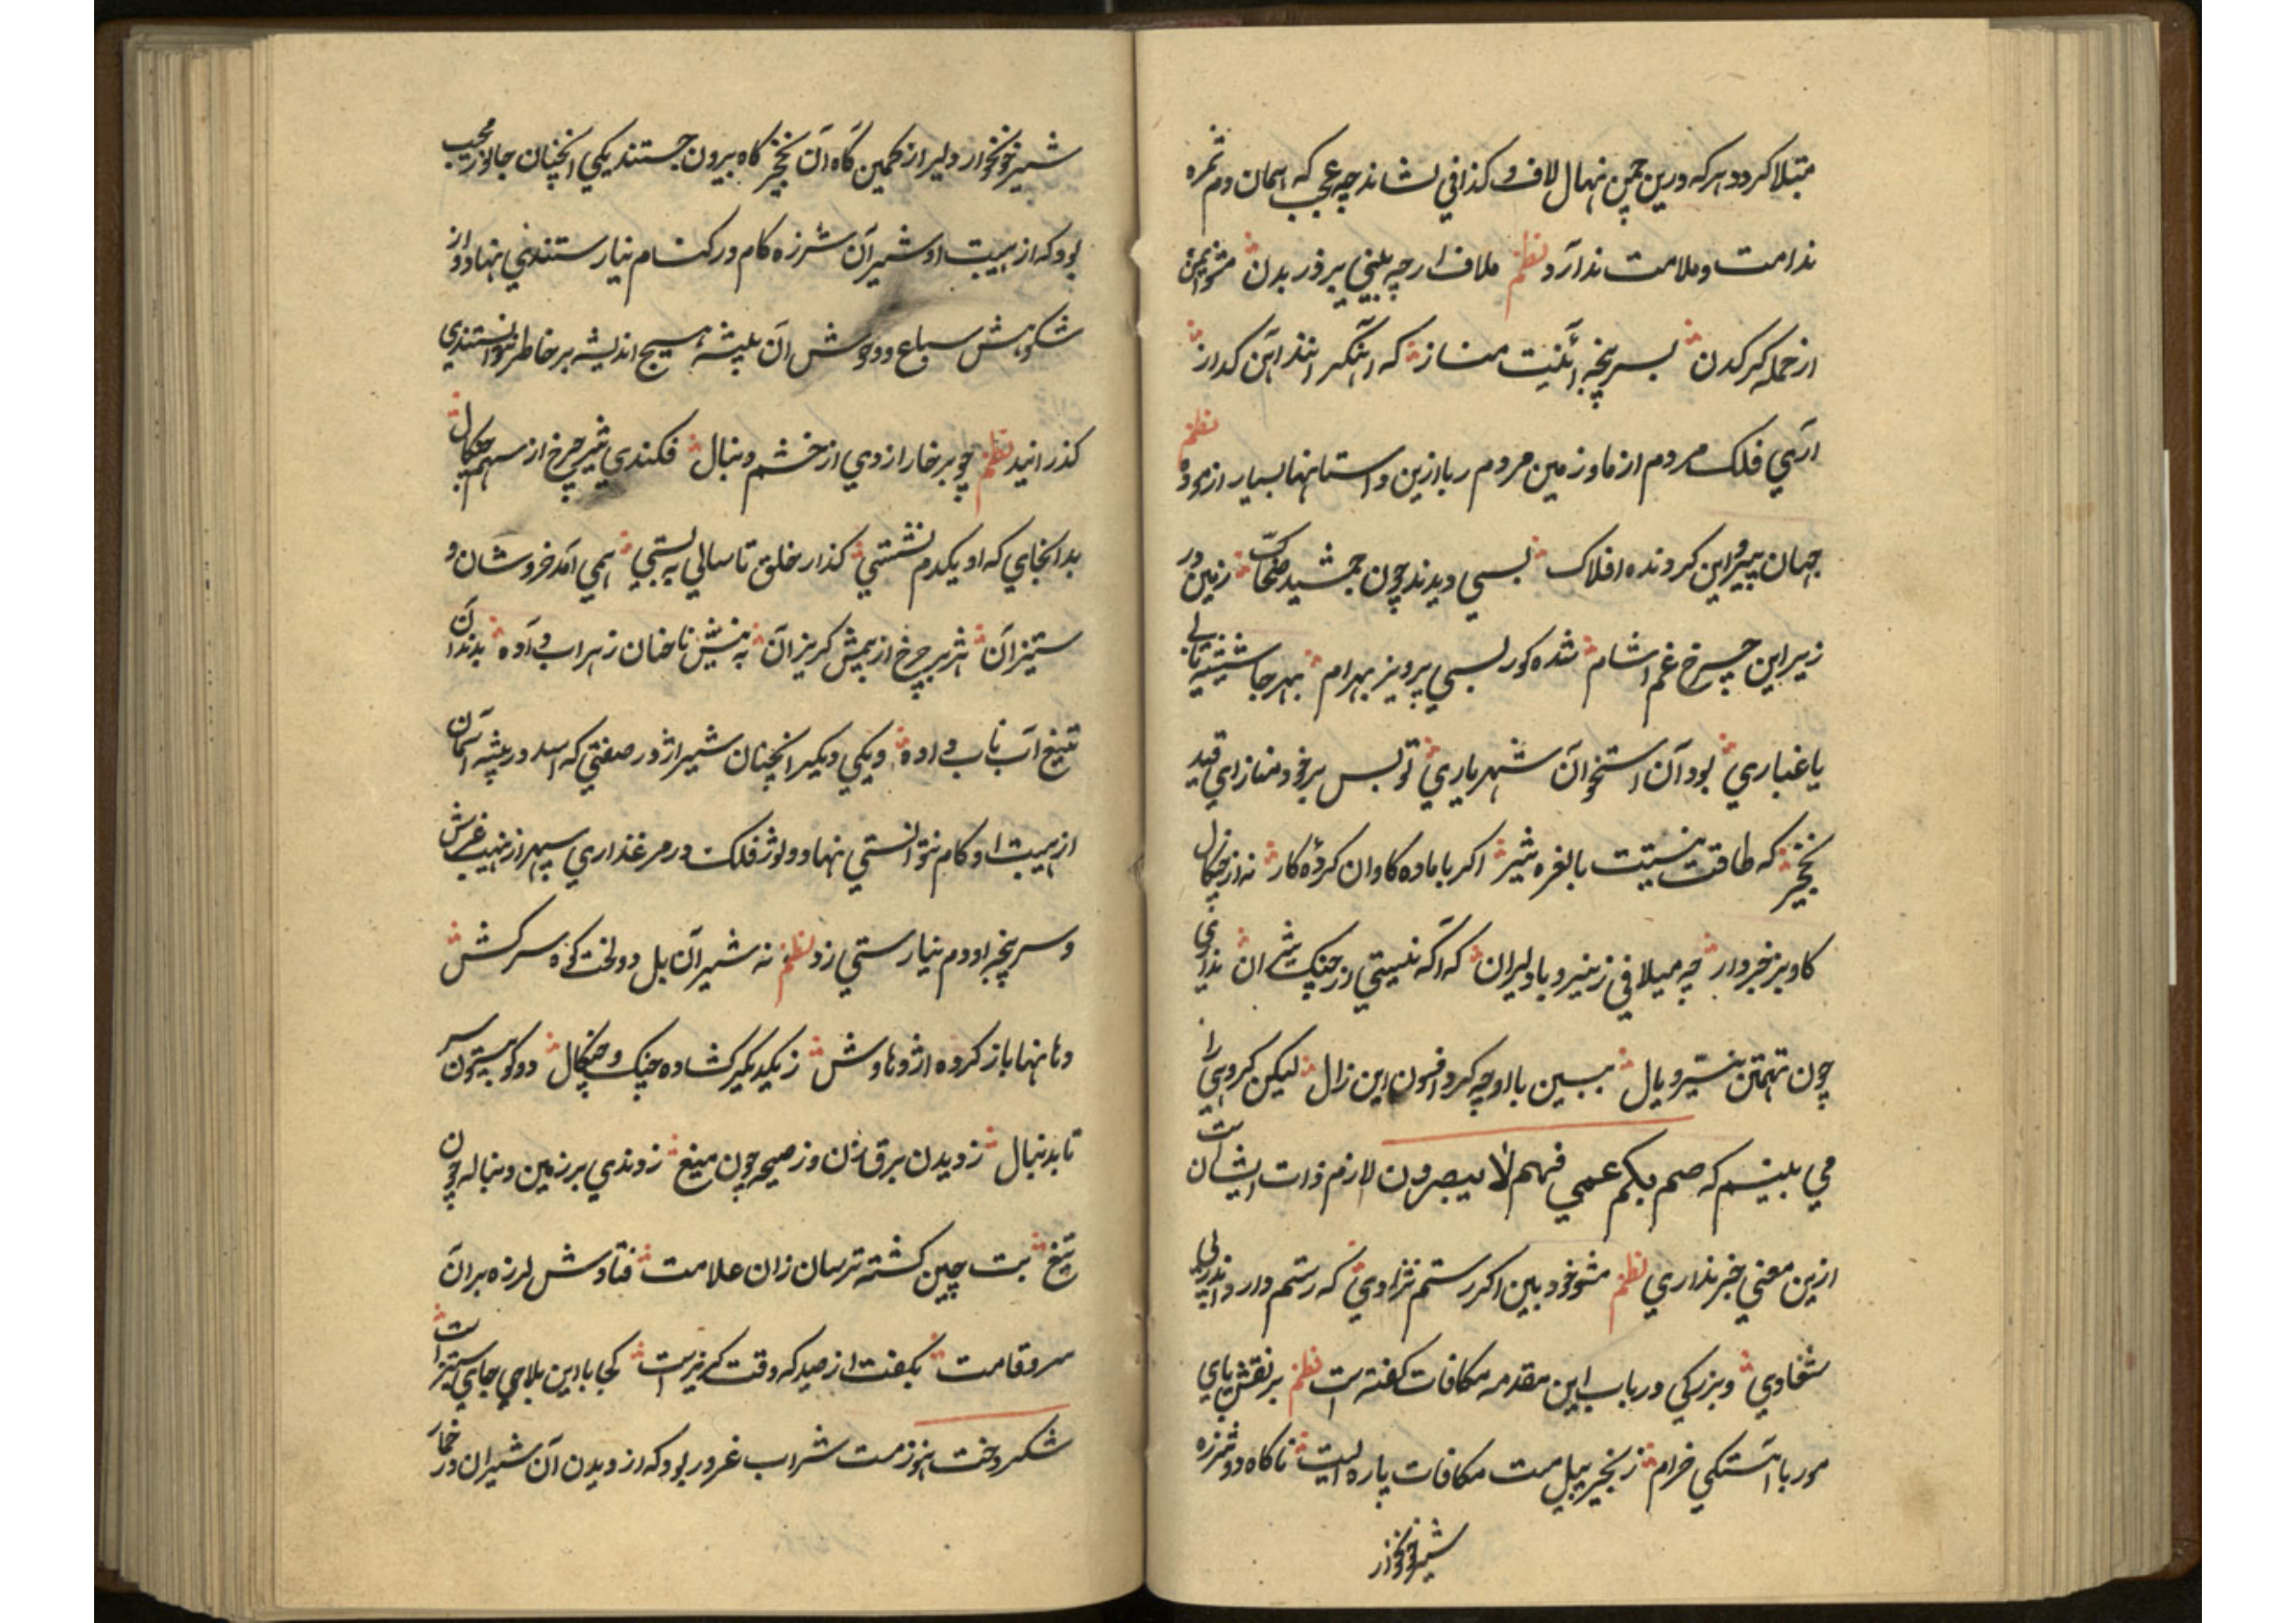 مبتلا کردد هر که درین چمن نهال لاف و کذافی نشاند چه عجب که اسمان دم ثمره
ندامت و ملامت ندارد نظم ملاف ارچه بلنی پر زور بدن مشو ایمن
از حمله کرکدن بسرپنجه آهنیت مناز که آهنگر انند آهن کداز
اری فلک مردم از ما و زمین مردم ربا ازین داستانها بسیار از بر نظم
جهان پیر و این کردنده افلاک بسی دیدند چون جمشید ضحاک زمین در
زیر این چرخ غم اشام شده کور بسی پرویز بهرام بهر جا شیشه یابی
یا غباری بود آن استخوان شهریاری تو بس بر خود مناز ای قید
نخچیر که طاقت نیست با نعره شیر اکر با ماده کاوان کرده کار نه از چنکال
کاو بز خبردار چه میلافی ز نیرو با دلیران که آکه نیستی از چنک شیران نداری
چون تهمتن نیرو یال ببین با او چه کرد افسون این زال لیکن کروهی را
می بینم که صم بکم عمی فهم لا یبصرون لازم ذات ایشان است
ازین معنی خبر نداری نظم مشو خود بین اکر رستم نژادی که رستم دارد اندر پی
شغادی و بزرکی در باب این مقدمه مکافات کفته است نظم بر نقش پای
مور باهستکی خرام زنجیر پیل مست مکافات پاره ایست ناکاه دو شرزه
شیر خونخوار
شیر خونخوار دلیر از کمین کاه آن نخچیر کاه بیرون جستند یکی انچنان جانور مهیب
بود که از هیبت او شیران شرزه کام در کنام نیارستندی نهاد و از
شکوهش سباع و وحوش ان بیشه هیچ اندیشه بر خاطر نتوانستندی
کذرانید نظم چو بر خارا زدی از خشم دنبال فکندی شیر چرخ از سهم چنکال
بدانجای که او یکدم نشستی کذار خلق تا سالی ببستی همی امد خروشان و
ستیزان هژبر چرخ از بیمش کریزان به نیش ناخنان زهراب داده بدندان
تیغ آب ناب داده و یکی دیکر انچنان شیر اژدر صفتی که اسد در بیشه آسمان
از هیبت او کام نتوانستی نهاد و ثور فلک در مرغذاری سپهر از نهیب غرش
و سرپنجه او دم نیارستی زد نظم نه شیران بل دو لخت کوه سرکش
دهانها باز کرده اژدهاوش ز یکدیکر کشاده چنک و چنکال دو کوه بیستون سر
تا بدنبال ز دیدن برق زن وز صیحه چون میغ زدندی بر زمین دنباله چون
تیغ بت چین کشته ترسان زان علامت فتادش لرزه بر آن
سرو قامت بکفت از صید که وقت کریزاست کجا با این بلا جای ستیز است
شکر دخت هنوز مست شراب غرور بود که از دیدن آن شیران در خمار